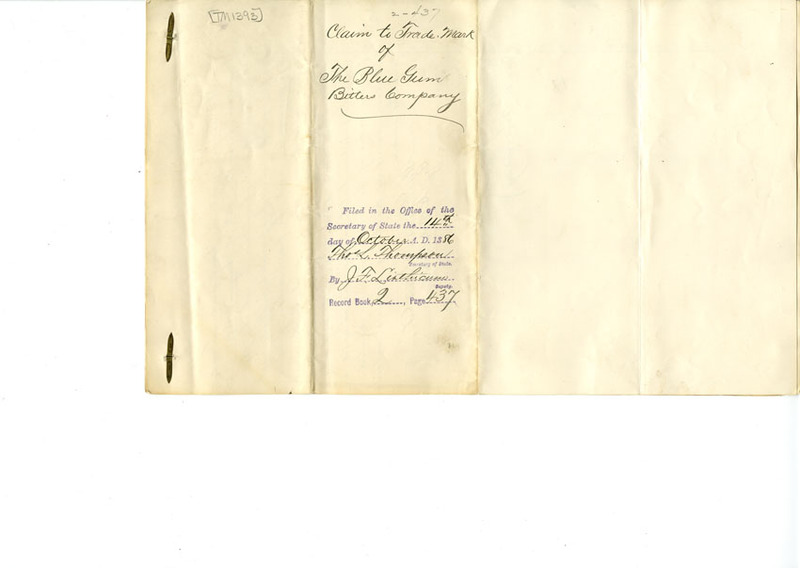 [TM1393]
2-437
Claim to Trade-Mark
of
The Blue Gum
Bitters Company
Filed in the Office of the
Secretary of State the 14th
day of October A. D. 1886
Thos. L. Thompson
Secretary of State.
By J. F. Linthicum
Deputy.
Record Book, 2, Page 437